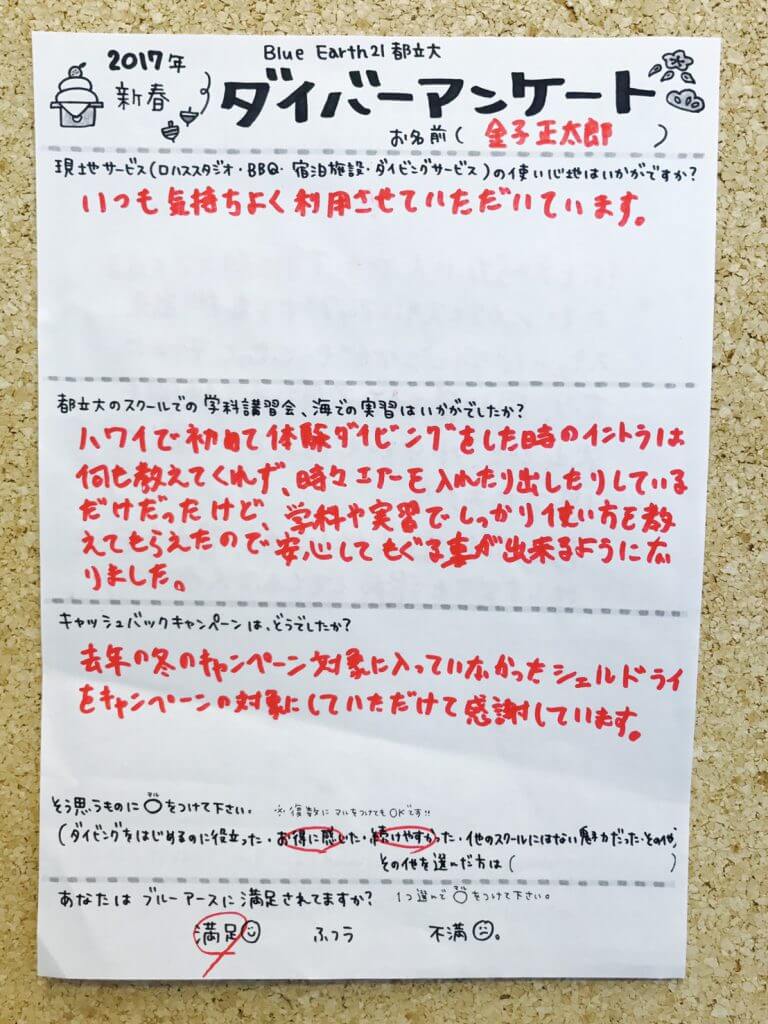 Blue Earth21 都立大
2017年
新春
ダイバーアンケート
お名前( 金子正太郎 )
現地サービス(ロハススタジオ・BBQ・宿泊施設・ダイビングサービス)の使い心地はいかがですか?
いつも気持ちよく利用させていただいています。
都立大のスクールでの学科講習会、海での実習はいかがでしたか?
ハワイで初めて体験ダイビングをした時のイントラは
何も教えてくれず、時々エアーを入れたり出したりしている
だけだったけど、学科や実習でしっかり使い方を教
えてもらえたので安心してもぐる事が出来るようにな
りました。
キャッシュバックキャンペーンは、どうでしたか?
去年の冬のキャンペーン対象に入っていなかったシェルドライ
をキャンペーンの対象にしていただけて感謝しています。
そう思うものに○マルをつけて下さい。 ※複数にマルをつけてもOKです!!
(ダイビングをはじめるのに役立った・お得に感じた・続けやすかった・他のスクールにはない魅力だった・その他)
その他を選んだ方は( )
あなたはブルーアースに満足されてますか? 1つ選んで○マルをつけて下さい。
満足 ふつう 不満。